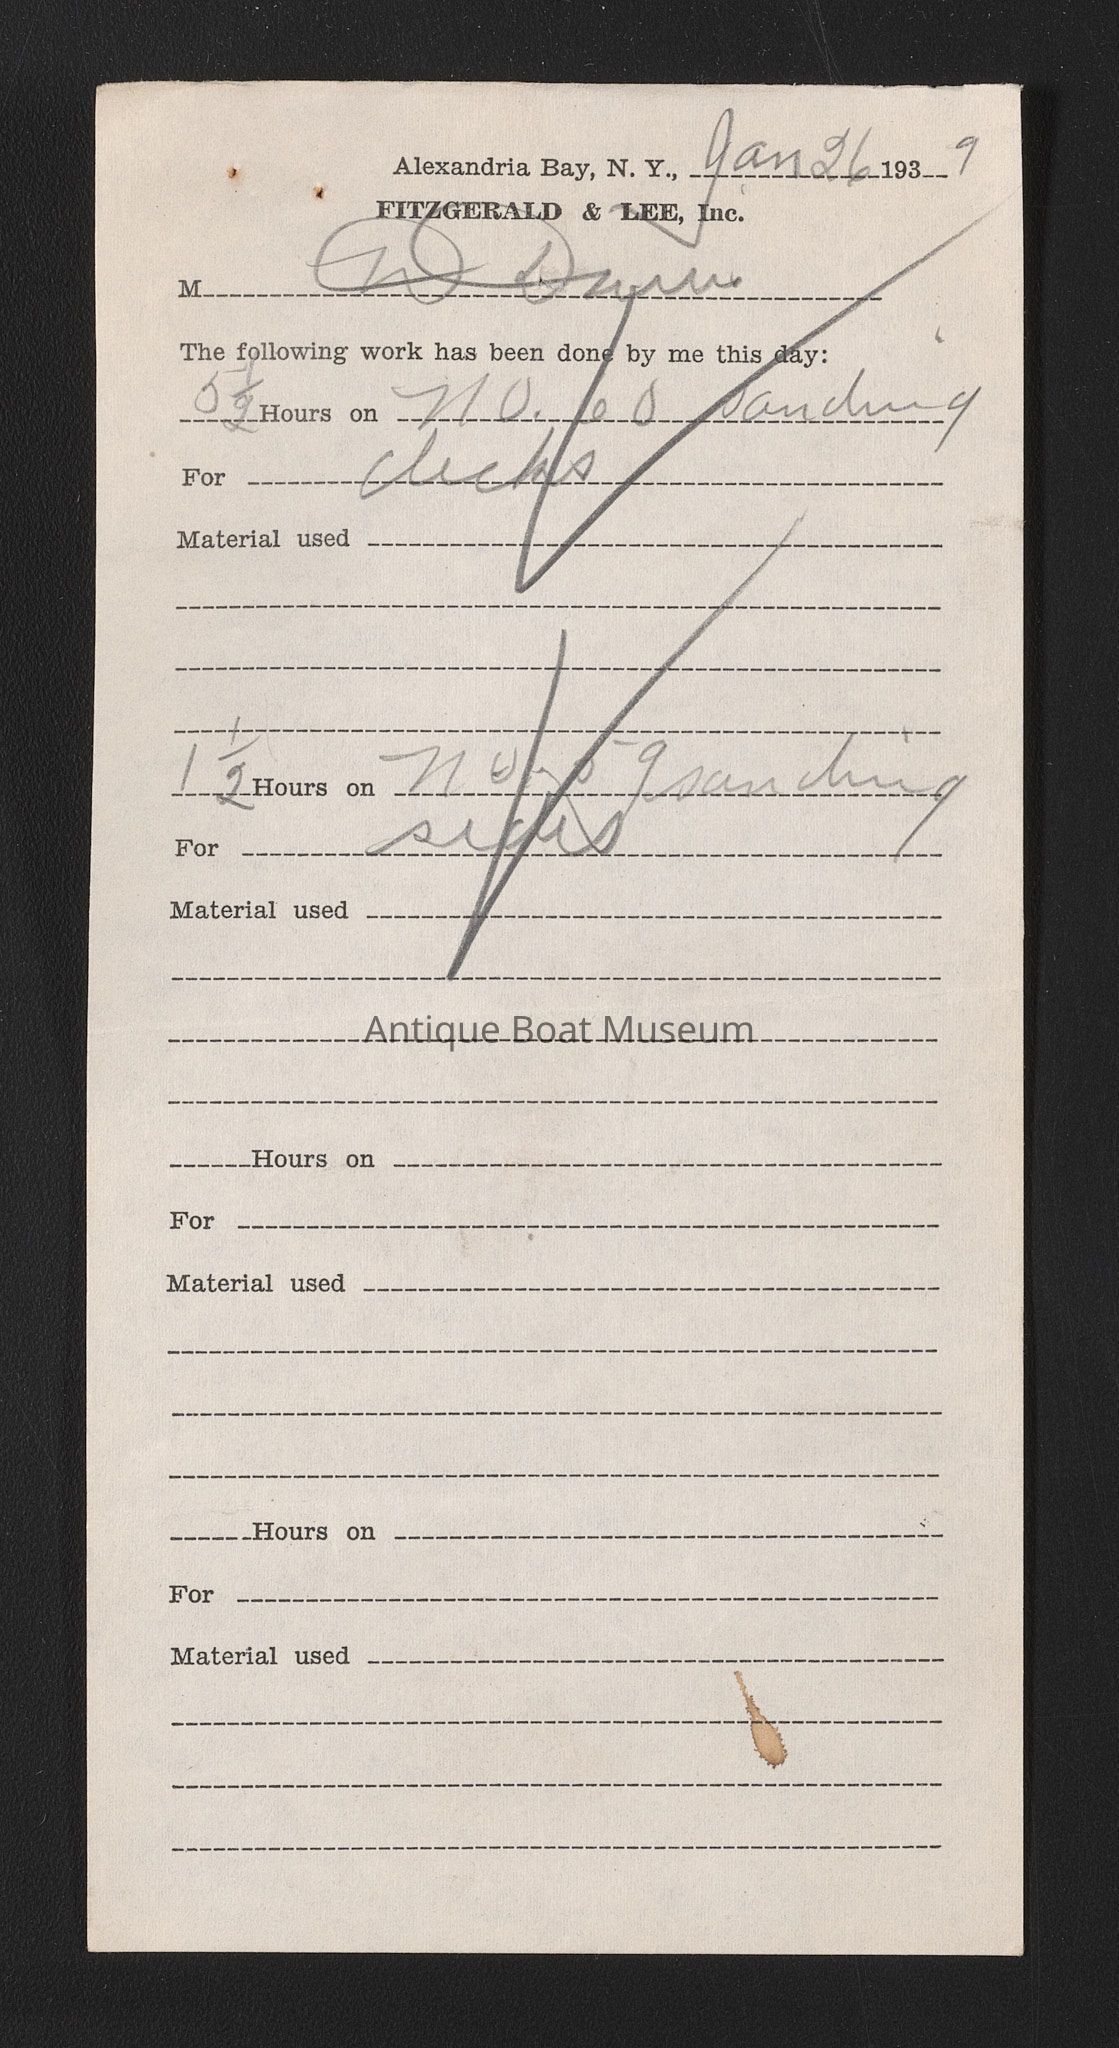 Alexandria Bay, N. Y., Jan 26 1939
FITZGERALD & LEE, Inc.
M
The following work has been done by me this day:
5 1/2 Hours on No. 60 sanding
For decks
Material used
1 1/2 Hours on No. 59 sanding
For sides
Material used
Antique Boat Museum
Hours on
For
Material used
Hours on
For
Material used